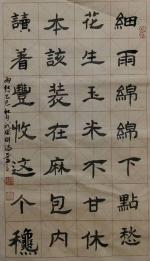 細雨綿綿下點愁
花生玉米不甘休
本該裝在麻包内
讀着豐收这个龝